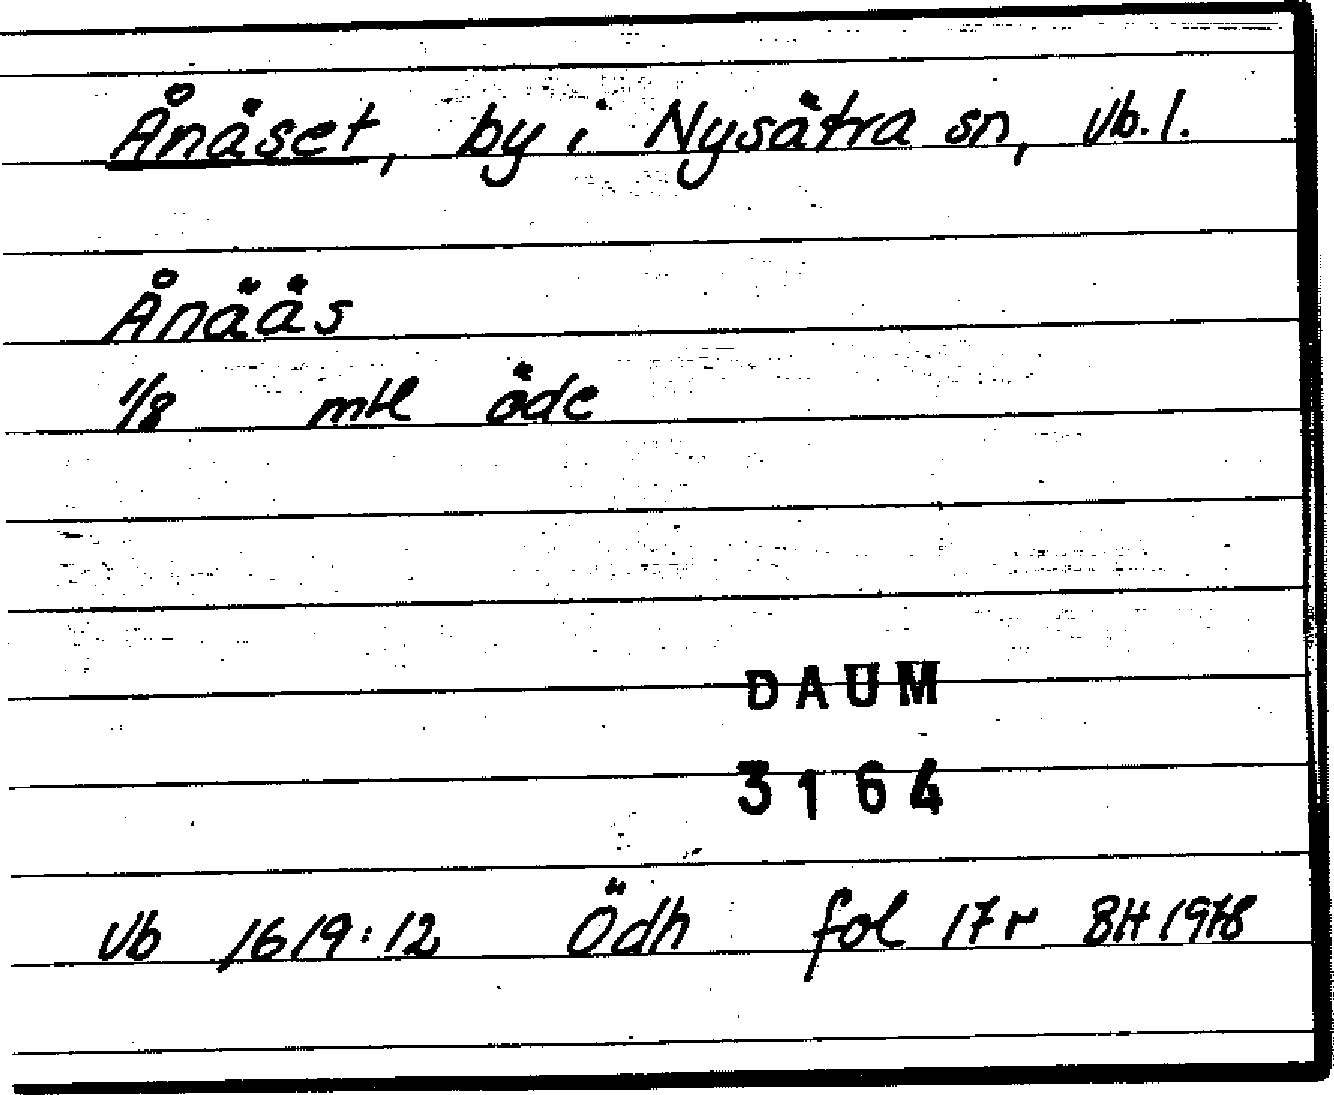 Ånäset, by i Nysätra sn, Vb. l.
Ånääs
1/8 mtl öde
DAUM
3164
Vb 1619:12 Ödh fol 17r BH 1978